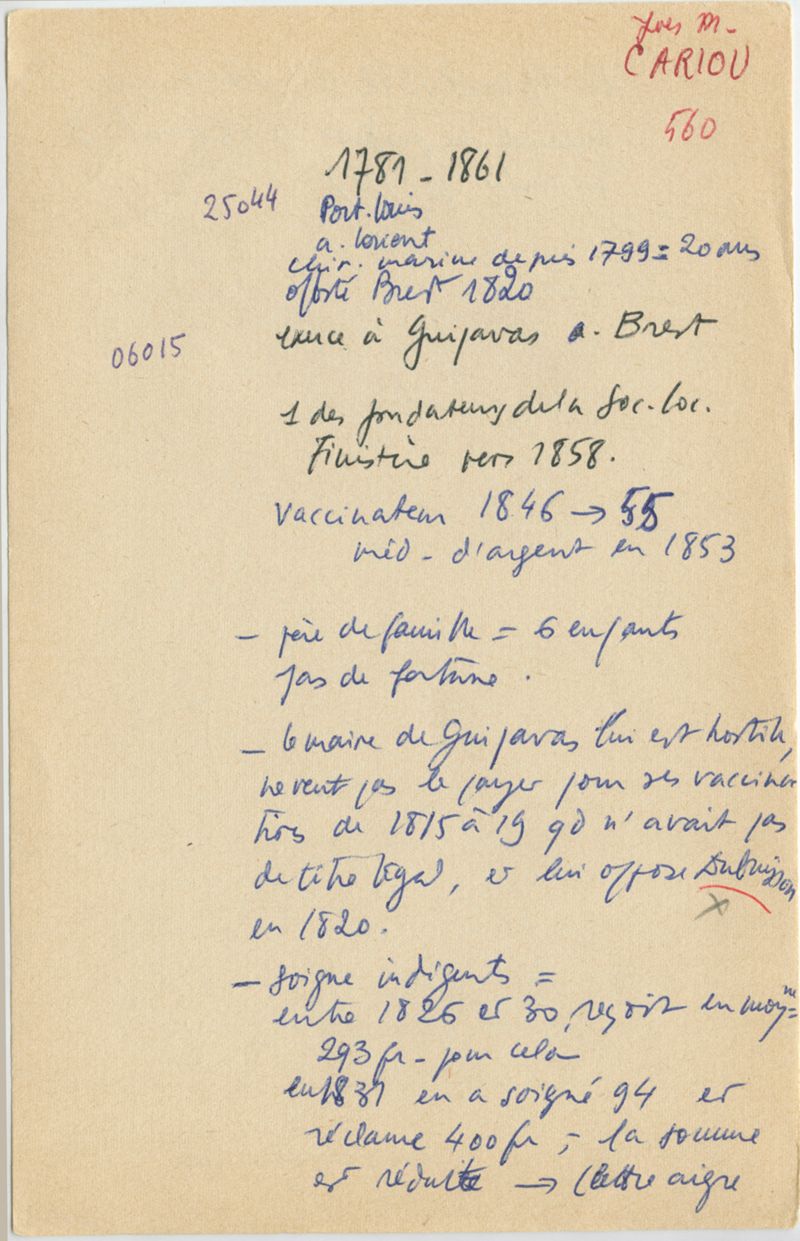 Yves M-
CARIOU
560
1781 - 1861
25044 Port-Louis
a. Lorient
chir. marine depuis 1799 = 20 ans
off. santé Brest 1820
06015 exerce à Guipavas a. Brest
1 des fondateurs de la Soc. loc.
Finistère vers 1858.
Vaccinateur 1846 → 55
méd - d'argent en 1853
- père de famille = 6 enfants
pas de fortune.
- le maire de Guipavas lui est hostile,
ne veut pas le payer pour ses vaccina
tions de 1815 à 19 qd n'avait pas
de titre légal, et lui oppose Dubuisson
en 1820.
- soigne indigents =
entre 1826 et 30, reçoit en moyne =
293 fr - pour cela
en 1831 en a soigné 94 et
réclame 400 fr ; - la somme
est réduite → lettre aigre